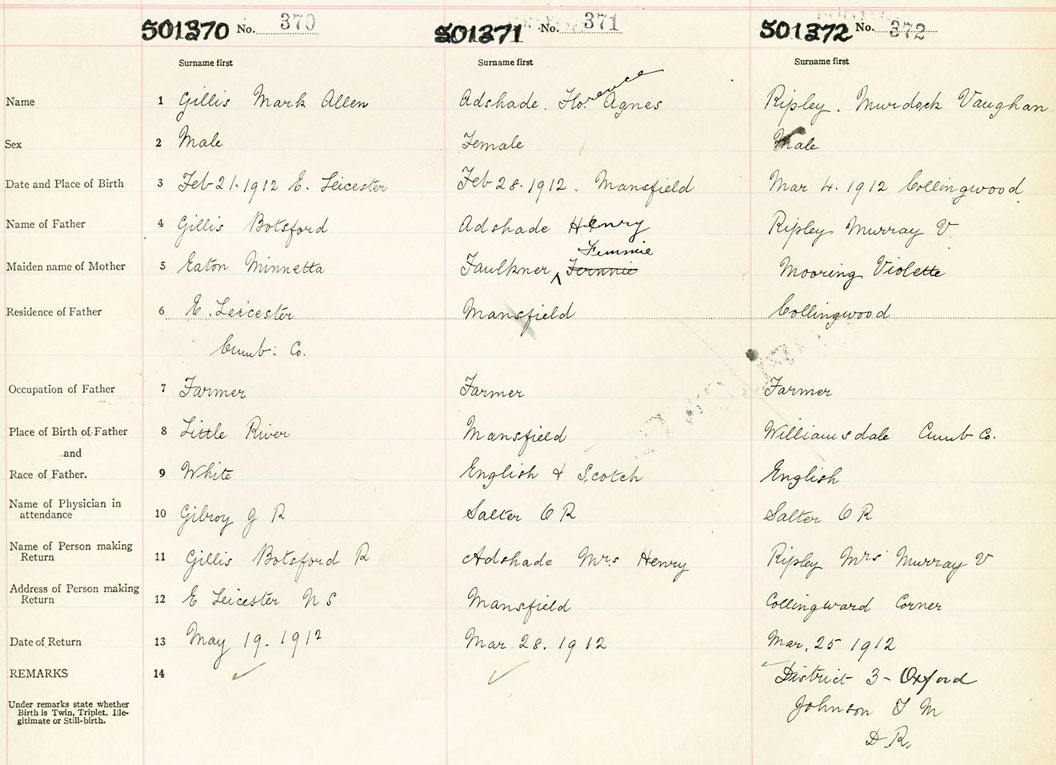 501370 No. 370 501371 No. 371 501372 No. 372
Surname first Surname first Surname first
Name 1 Gillis Mark Allen Adshade. Florence Agnes Ripley. Murdock Vaughan
Sex 2 Male Female Male
Date and Place of Birth 3 Feb 21.1912 E. Leicester Feb 28.1912. Mansfield Mar 4.1912 Collingwood
Name of Father 4 Gillis Botsford Adshade Henry Ripley Murray V.
Femmie
Maiden name of Mother 5 Eaton Minnetta Faulkner Mooring Violette
Residence of Father 6 E. Leicester Mansfield Collingwood
Cumb: Co.
Occupation of Father 7 Farmer Farmer Farmer
Place of Birth of Father 8 Little River Mansfield Williamsdale Cumb Co.
and
Race of Father. 9 White English & Scotch English
Name of Physician in
attendance 10 Gilroy J R Salter C R Salter C R
Name of Person making
Return 11 Gillis Botsford R Adshade Mrs Henry Ripley Mrs Murray V
Address of Person making
Return 12 E Leicester N S Mansfield Collingward Corner
Date of Return 13 May 19. 1912 Mar 28. 1912 Mar, 25 1912
REMARKS 14 District 3 - Oxford
Under remarks state whether
Birth is Twin, Triplet, Ille-
gitimate or Still-birth.
Johnson T M
D. R.